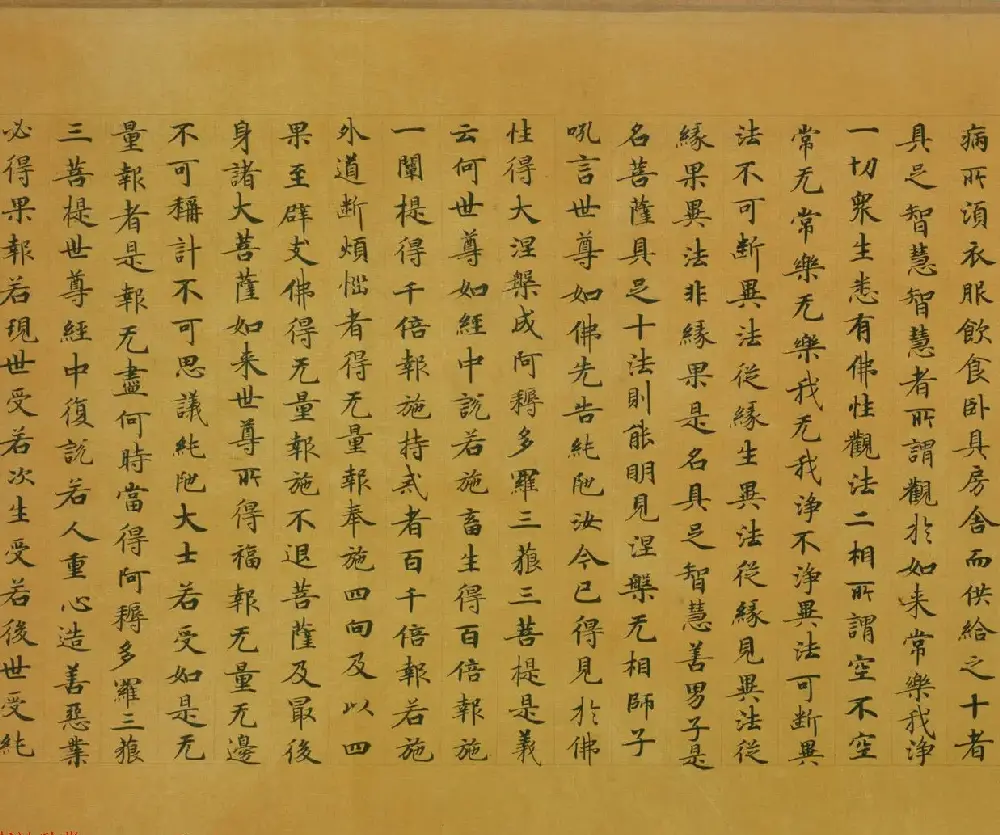 病所須衣服飲食卧具房舍而供給之十者
具足智慧智慧者所謂觀於如来常樂我浄
一切眾生悉有佛性觀法二相所謂空不空
常无常樂无樂我无我浄不浄異法可断異
法不可断異法從緣生異法從緣見異法從
緣果異法非緣果是名具足智慧善男子是
名菩薩具足十法則能明見涅槃无相師子
吼言世尊如佛先告純陁汝今已得見於佛
性得大涅槃成阿耨多羅三藐三菩提是義
云何世尊如經中說若施畜生得百倍報施
一闡提得千倍報施持戒者百千倍報若施
外道断煩惱者得无量報奉施四向及以四
果至辟支佛得无量報施不退菩薩及最後
身諸大菩薩如来世尊所得福報无量无邊
不可稱計不可思議純陁大士若受如是无
量報者是報无盡何時當得阿耨多羅三藐
三菩提世尊經中復說若人重心造善惡業
必得果報若現世受若次生受若後世受純